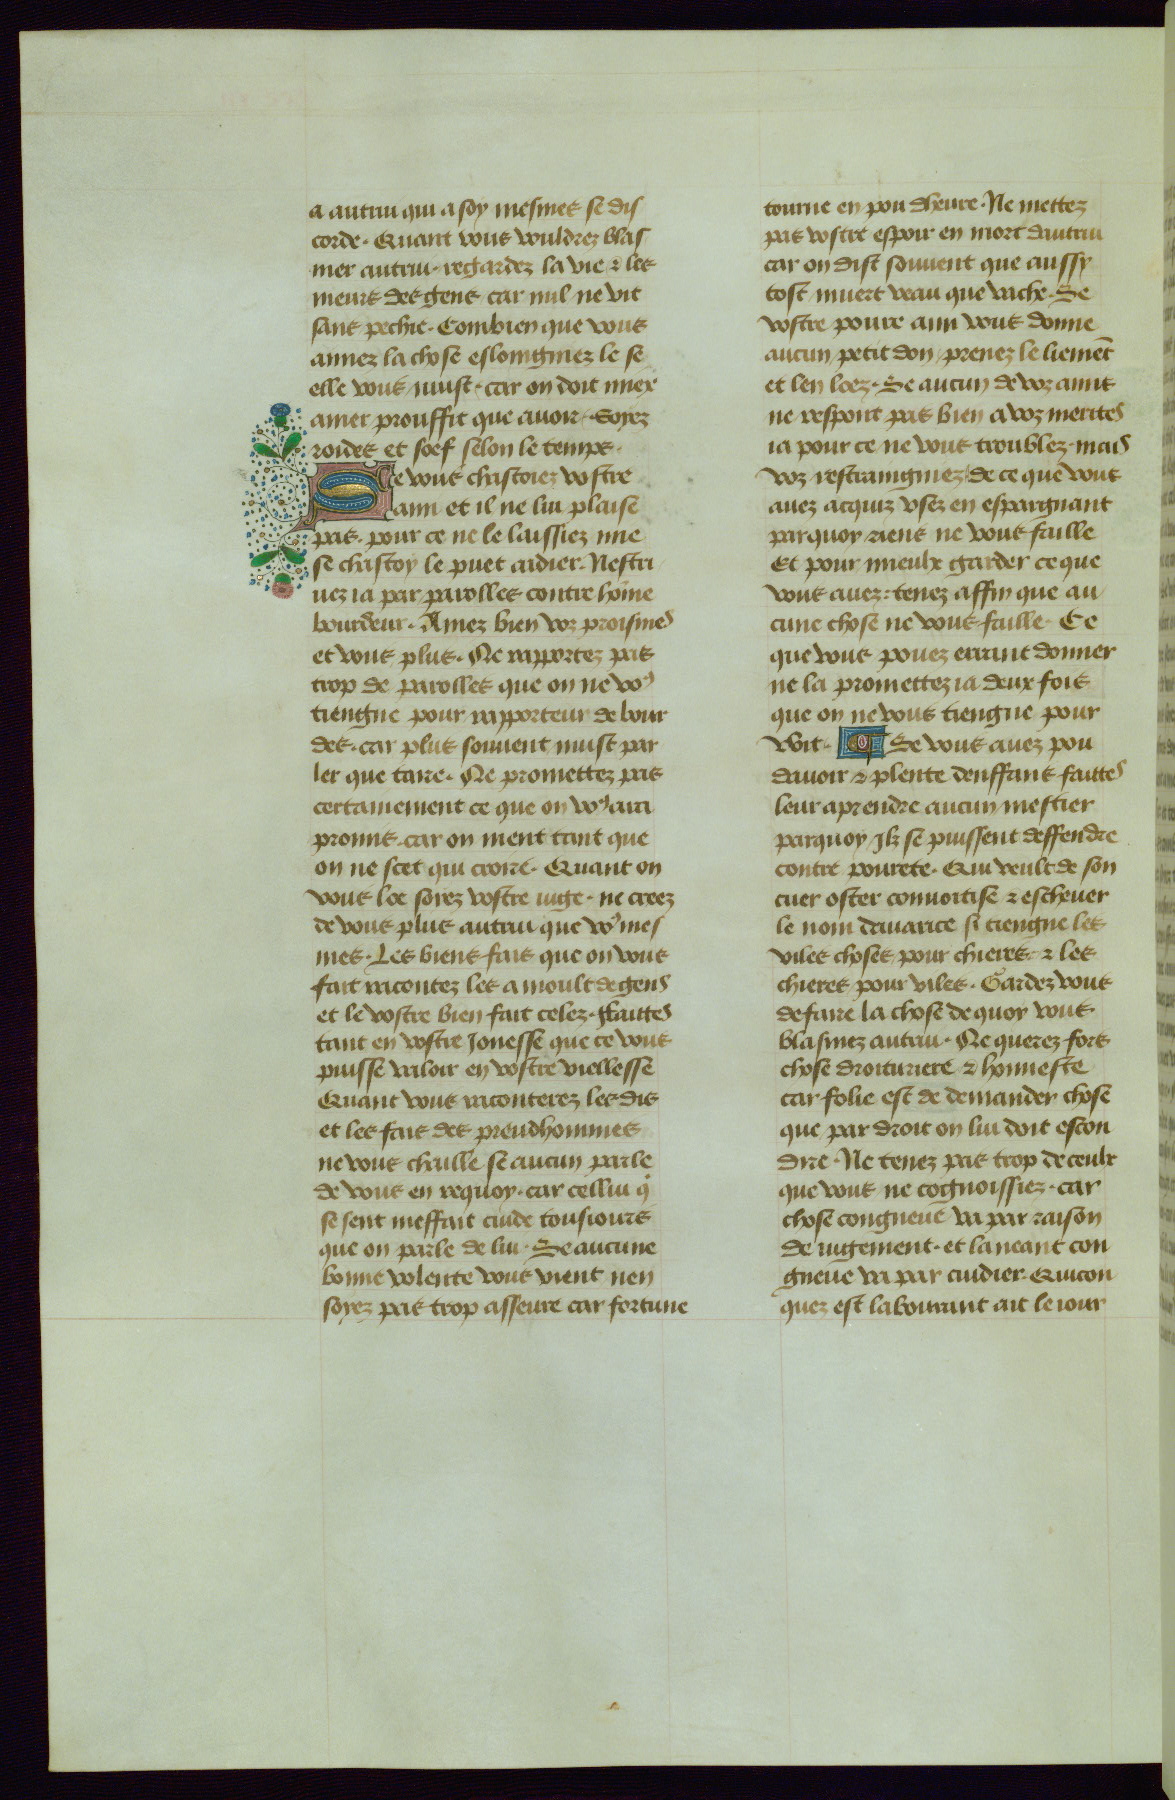 a autrui qui a soy mesmes se dis
corde. Quant vous vouldrez blas
mer autrui. regardez la vie & les
meurs des gens car nul ne vit
sans pechie. Combien que vous
amez la chose eslongniez le se
elle vous nuist. car on doit miex
amer prouffit que avoir. Soyez
roides et soef selon le temps.
Se vous chastoiez vostre
ami et il ne lui plaise
pas. pour ce ne le laissiez mie
se chastoy le puet aidier. Nestri
uez ia par parolles contre hõme
bourdeur. Amez bien voz proismes
et vous plus. Ne rapportez pas
trop de parolles que on ne vo⁹
tiengne pour rapporteur de bour
des. car plus souuent nuist par
ler que taire. Ne promettez pas
certainement ce que on vo⁹ ara
promis. car on ment tant que
on ne scet qui croire. Quant on
vous loe soyez vostre iuge. ne creez
de vous plus autrui que vo⁹ mes
mes. Les biens fais que on vous
fait racontez les a moult de gens
et le vostre bien fait celez. ffaittes
tant en vostre Jonesse que ce vous
puisse valoir en vostre viellesse
Quant vous raconterez les dis
et les fais des preudhommes
ne vous chaille se aucun parle
de vous en requoy. car cellui q̇
se sent meffait cuide tousiours
que on parle de lui. Se aucune
bonne volente vous vient nen
soyez pas trop asseure car fortune
tourne en pou dheure. Ne mettez
pas vostre espoir en mort dautrui
car on dist souuent que aussy
tost muert veau que vache. Se
vostre poure ami vous donne
aucun petit don prenez le liemẽt
et len loez. Se aucun de voz amis
ne respont pas bien a voz merites
ia pour ce ne vous troublez. mais
voz restraingniez de ce que vous
auez acquiz vsez en espargnant
par quoy riens ne vous faille
Et pour mieulx garder ce que
vous auez: tenez affin que au
cune chose ne vous faille. Ce
que vous pouez errant donner
ne la promettez ia deux fois
que on ne vous tiengne pour
voit. Se vous auez pou
dauoir & plente denffans faittes
leur aprendre aucun mestier
par quoy Ilz se puissent deffendre
contre pourete. Qui veult de son
cuer oster conuoitise & escheuer
le nom dauarice si tiengne les
viles choses pour chieres. & les
chieres pour viles. Gardez vous
de faire la chose de quoy vous
blasmez autrui. Ne querez fors
chose droituriere & honneste
car folie est de demander chose
que par droit on lui doit escon
dire. Ne tenez pas trop de ceulx
que vous ne cognoissiez. car
chose congneue va par raison
de iugement. et la neant con
gneue va par cuidier. Quicon
quez est labourant ait le iour